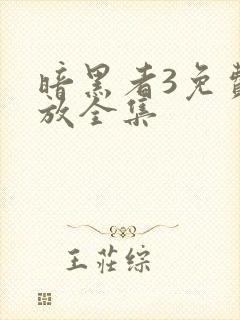 暗黑者3免费
放全集
王莊综